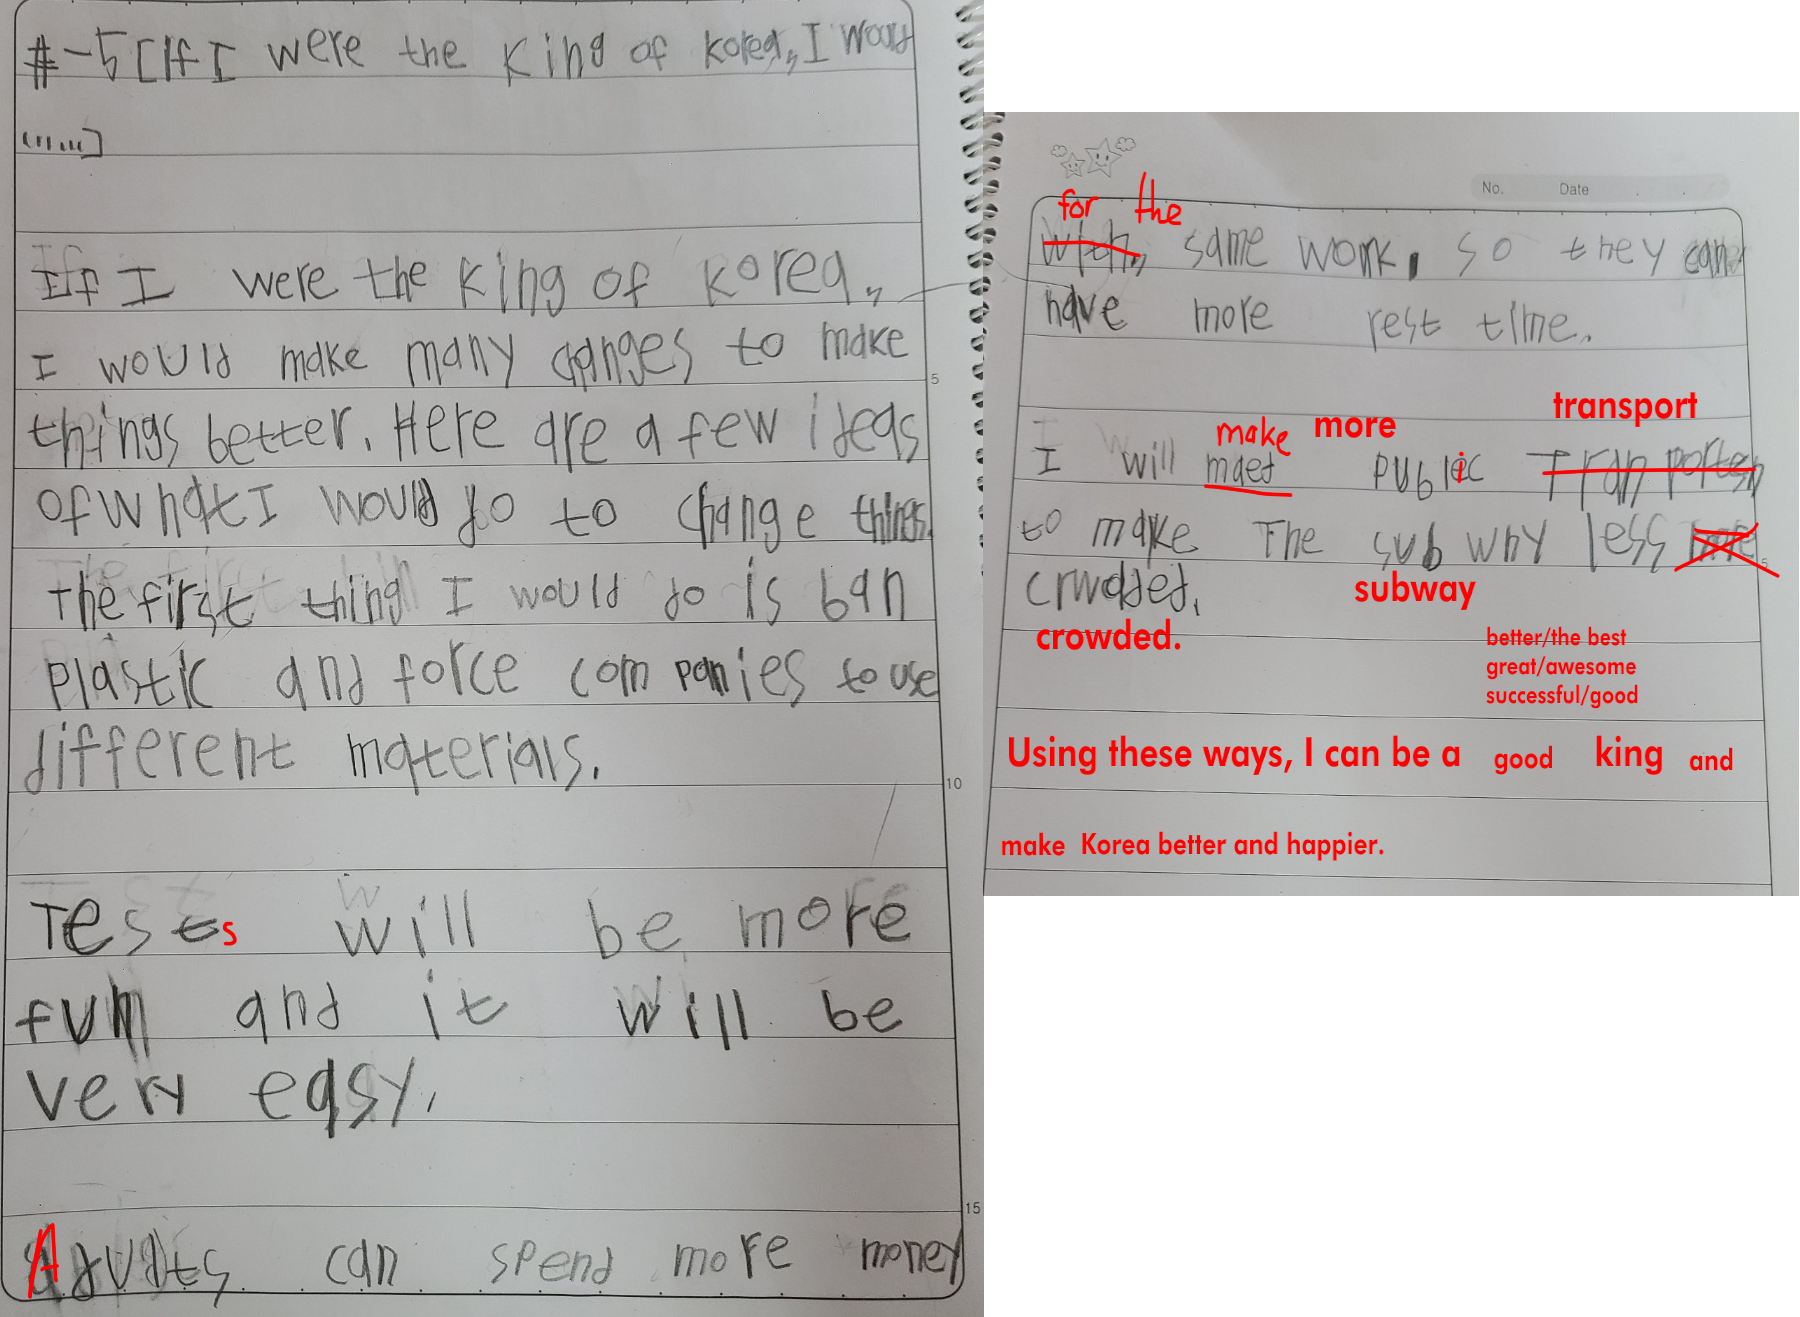 #-5 [If I were the King of Korea, I would
......]
If I were the King of Korea,
I would make many changes to make
things better. Here are a few ideas
of what I would do to change things.
The first thing I would do is ban
plastic and force companies to use
different materials.
Tests will be more
fun and it will be
very easy.
Adults can spend more money
No. Date
for the
with, same work, so they can
have more rest time.
transport
make more
I will maed public Tran porten
to make The sub why less more
crwaded.
subway
crowded.
better/the best
great/awesome
successful/good
Using these ways, I can be a good king and
make Korea better and happier.
5
10
15
5